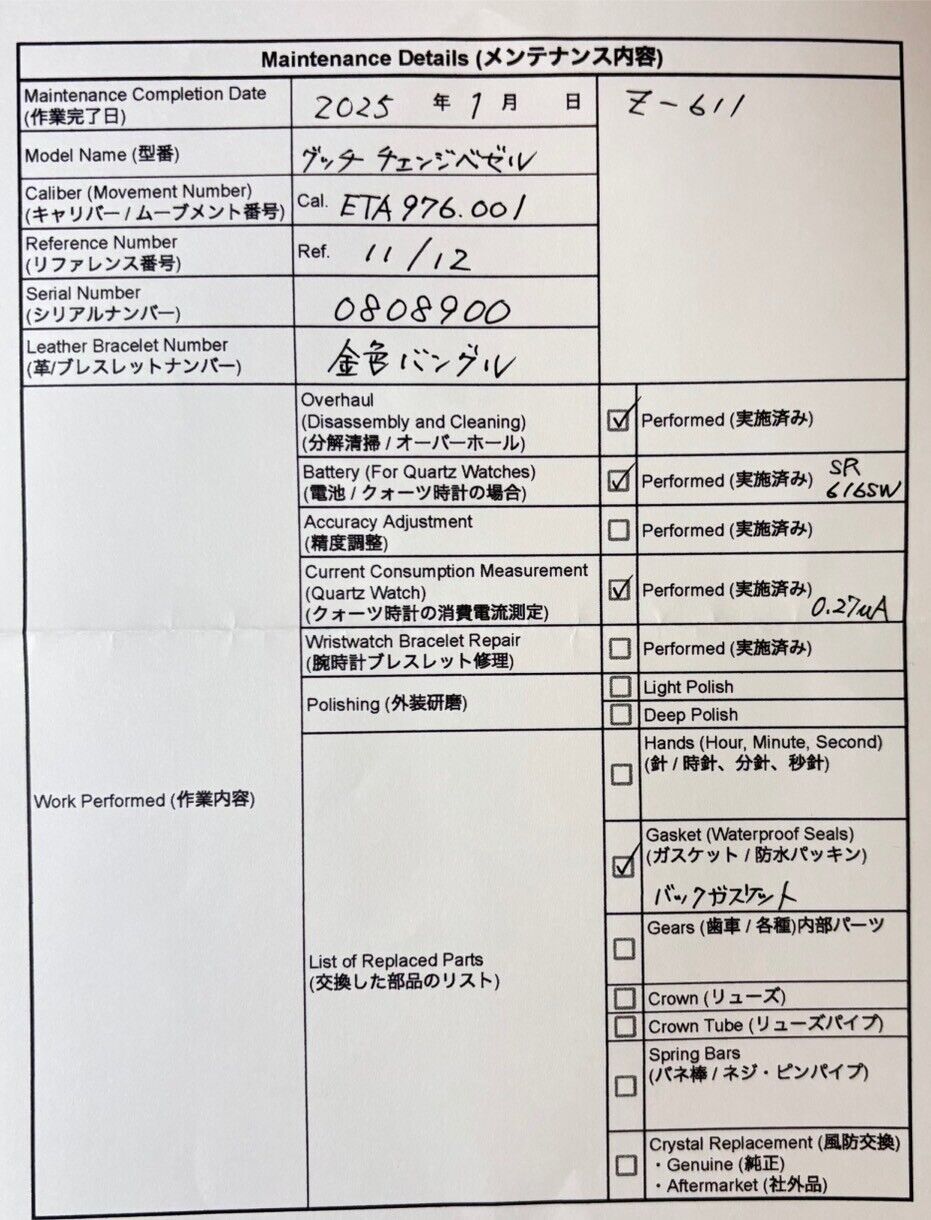 Maintenance Details (メンテナンス内容)
Maintenance Completion Date
(作業完了日)
2025 年 1 月 日
Z-611
Model Name (型番)
グッチ チェンジベゼル
Caliber (Movement Number)
(キャリバー / ムーブメント番号)
Cal. ETA 976.001
Reference Number
(リファレンス番号)
Ref. 11/12
Serial Number
(シリアルナンバー)
0808900
Leather Bracelet Number
(革/ブレスレットナンバー)
金色バングル
Work Performed (作業内容)
Overhaul
(Disassembly and Cleaning)
(分解清掃 / オーバーホール)
Performed (実施済み)
Battery (For Quartz Watches)
(電池 / クォーツ時計の場合)
Performed (実施済み)
SR
616SW
Accuracy Adjustment
(精度調整)
Performed (実施済み)
Current Consumption Measurement
(Quartz Watch)
(クォーツ時計の消費電流測定)
Performed (実施済み)
0.27uA
Wristwatch Bracelet Repair
(腕時計ブレスレット修理)
Performed (実施済み)
Polishing (外装研磨)
Light Polish
Deep Polish
List of Replaced Parts
(交換した部品のリスト)
Hands (Hour, Minute, Second)
(針 / 時針、分針、秒針)
Gasket (Waterproof Seals)
(ガスケット / 防水パッキン)
バックガスケット
Gears (歯車 / 各種)内部パーツ
Crown (リューズ)
Crown Tube (リューズパイプ)
Spring Bars
(バネ棒 / ネジ・ピンパイプ)
Crystal Replacement (風防交換)
・Genuine (純正)
・Aftermarket (社外品)